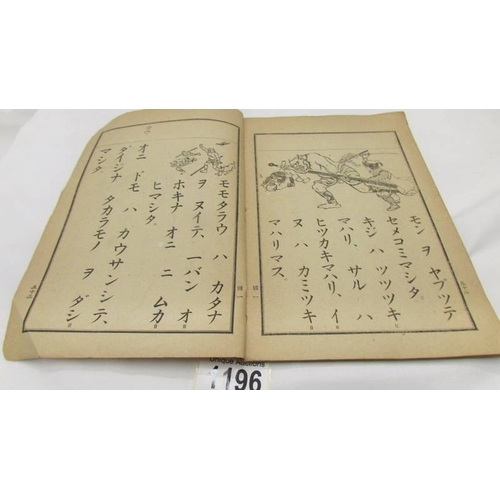 モン ヲ ヤブッテ
セメコミマシタ。
キジ ハ ツツツキ
マハリ、サル ハ
ヒッカキマハリ、イ
ヌ ハ カミツキ
マハリマス。
モモタラウ ハ カタナ
ヲ ヌイテ、一バン オ
ホキナ オニ ニ ムカ
ヒマシタ。
オニ ドモ ハ カウサンシテ、
ダイジナ タカラモノ ヲ ダシ
マシタ。
Unique Auctions
1196